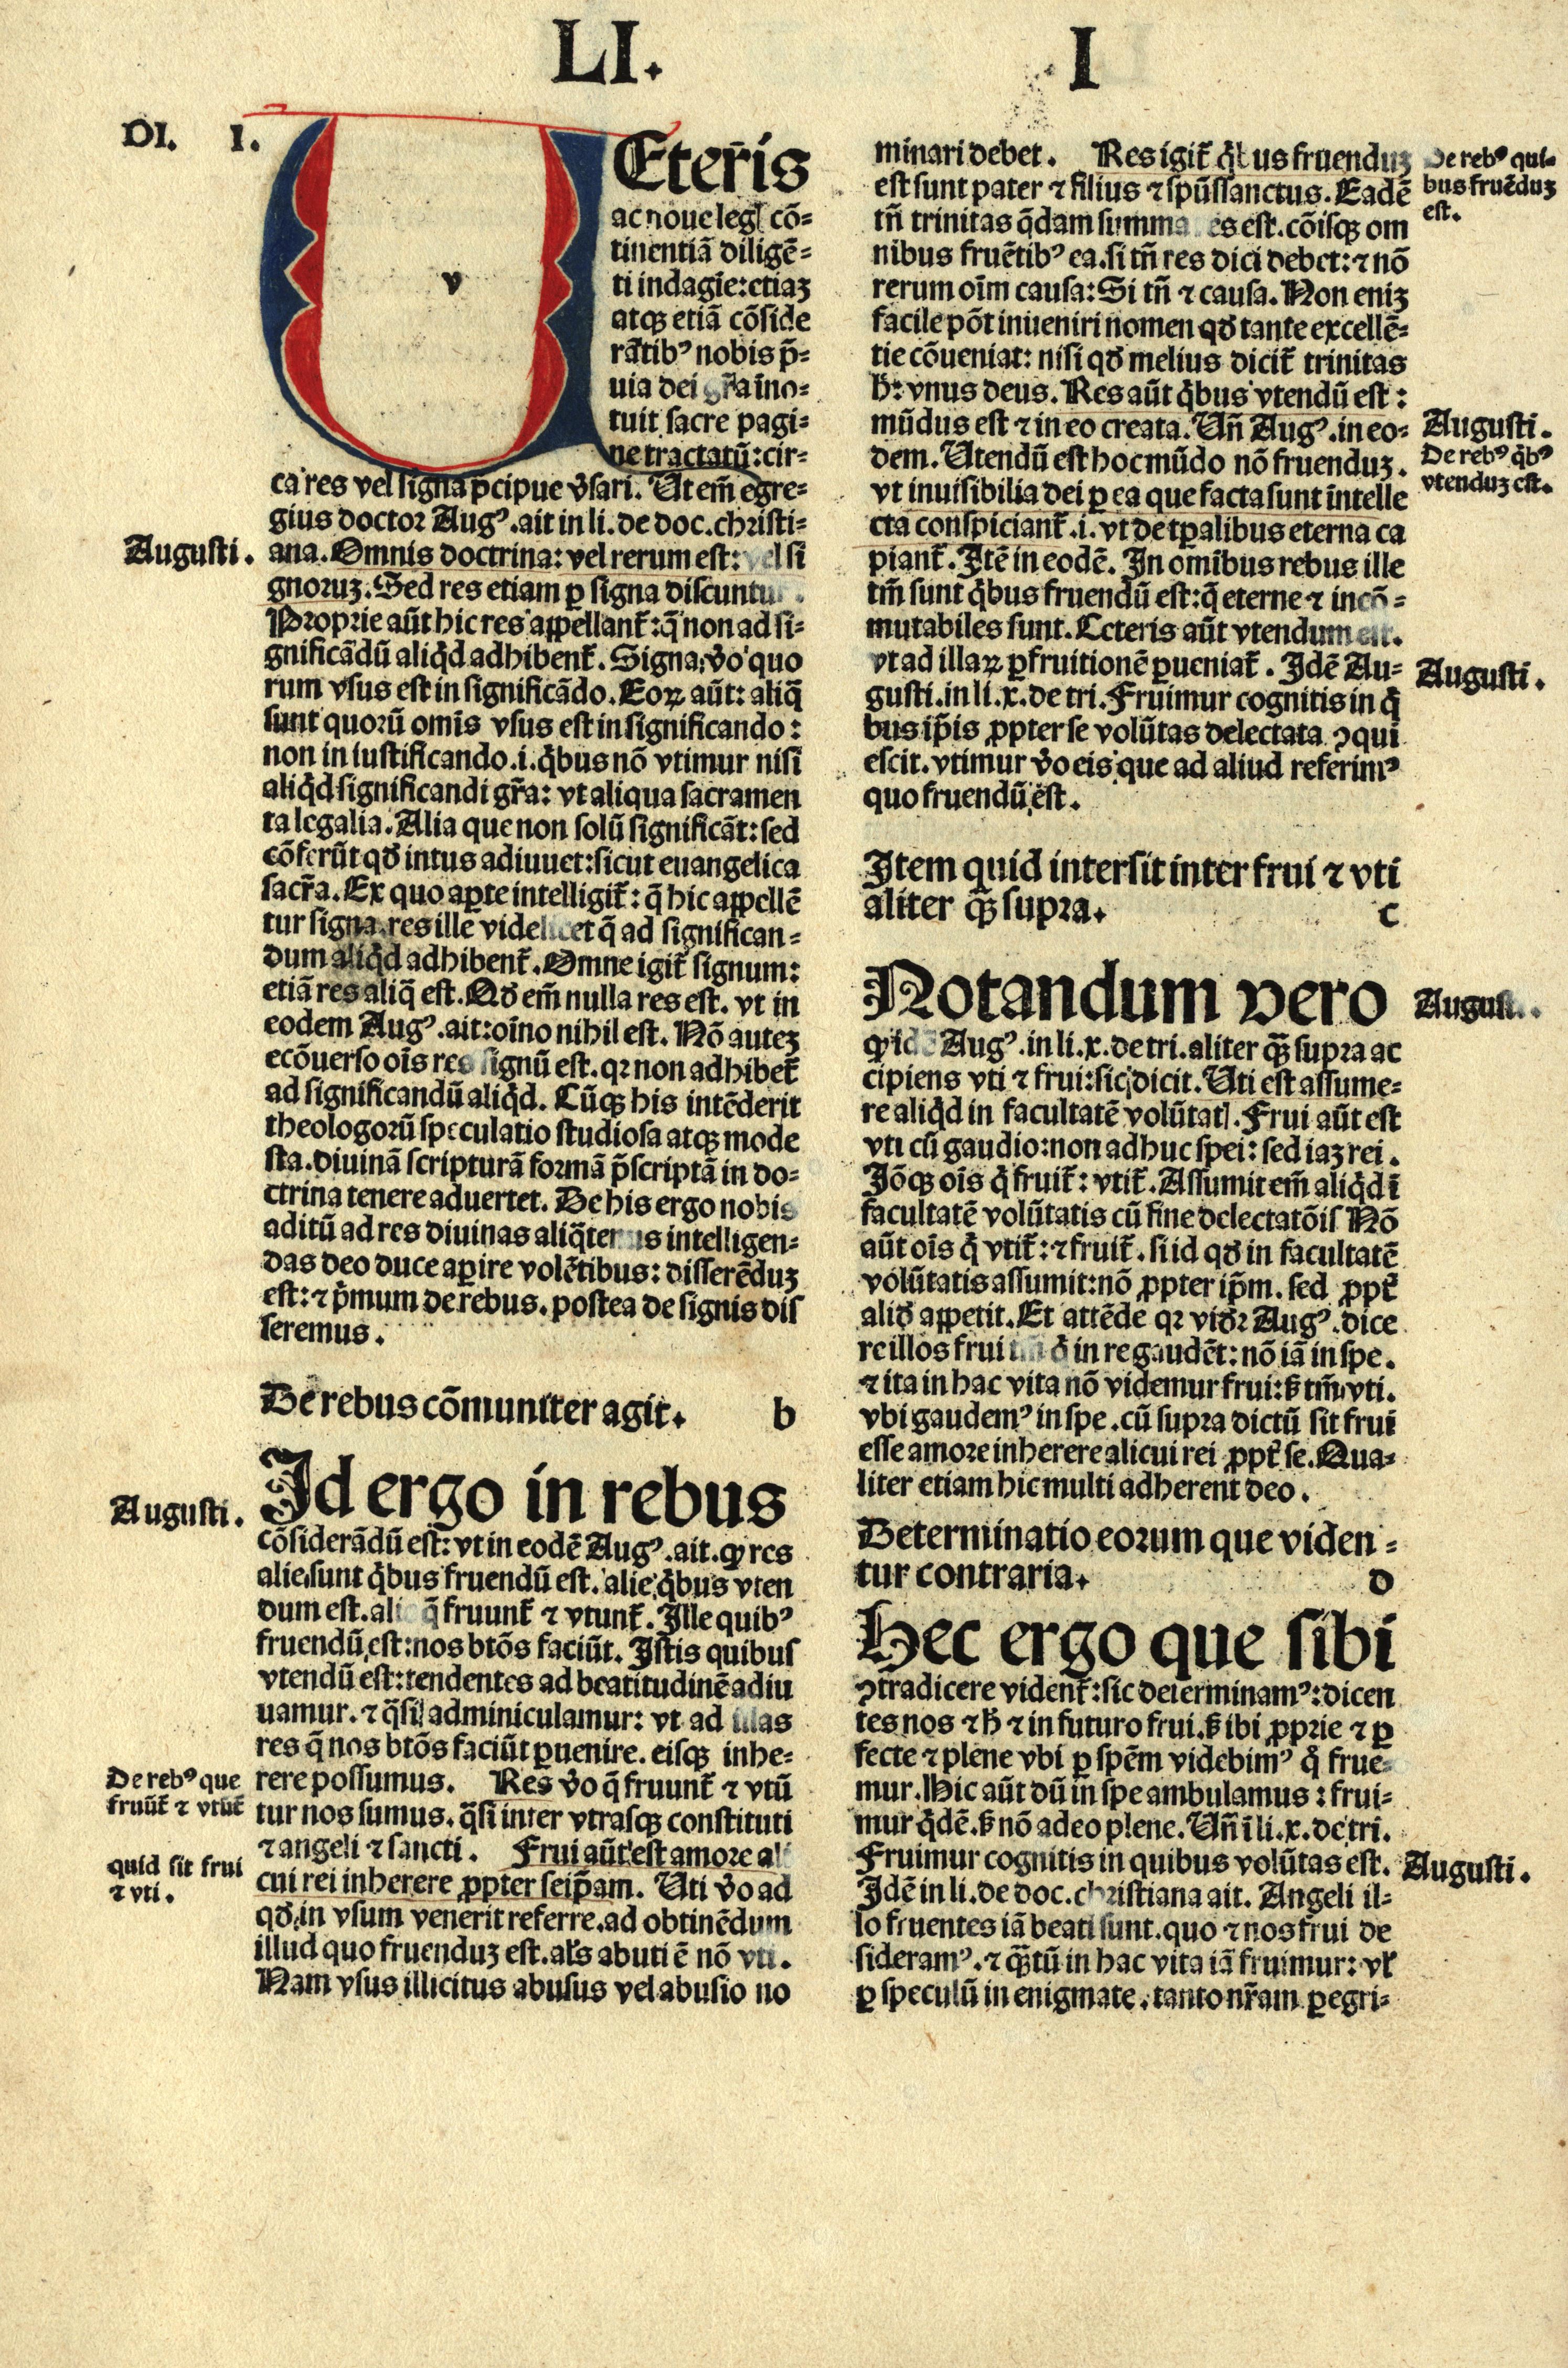 LI. I
DI. I.
v
Eter̄is
ac noue legꝭ cō-
tinentiā diligē-
ti indagīe: etiaꝫ
atqꝫ etiā cōside
rātibꝰ nobis p̄-
uia dei gr̄a īno-
tuit sacre pagi-
ne tractatū: cir-
ca res vel signa p̄cipue v̄sari. Ut em̄ egre-
gius doctor Augꝰ. ait in li. de doc. christi-
Augusti.
ana. Omnis doctrina: vel rerum est: vel si
gnoruꝫ. Sed res etiam ꝑ signa discuntur.
Proprie aūt hic res appellanť: q̄ non ad si-
gnificādū aliq̇d adhibenť. Signa v̄o quo
rum vsus est in significādo. Eoꝝ aūt: aliq̄
sunt quorū omīs vsus est in significando:
non in iustificando .i. q̇bus nō vtimur nisi
aliq̇d significandi gr̄a: vt aliqua sacramen
ta legalia. Alia que non solū significāt: sed
cōferūt qd̄ intus adiuuet: sicut euangelica
sacr̄a. Ex quo aꝑte intelligiť: q̄ hic appellē
tur signa. res ille videlicet q̄ ad significan-
dum aliq̇d adhibenť. Omne igiť signum:
etiā res aliq̄ est. Qd̄ em̄ nulla res est. vt in
eodem Augꝰ. ait: oīno nihil est. Nō auteꝫ
ecōuerso oīs res signū est. qꝛ non adhibeť
ad significandū aliq̇d. Cūqꝫ his intēderit
theologorū speculatio studiosa atqꝫ mode
sta. diuinā scripturā formā p̄scriptā in do-
ctrina tenere aduertet. De his ergo nobis
aditū ad res diuinas aliq̄tenus intelligen-
das deo duce aꝑire volētibus: disserēduꝫ
est: ⁊ p̄mum de rebus. postea de signis dis
seremus.
De rebus cōmuniter agit. b
Id ergo in rebus
Augusti.
cōsiderādū est: vt in eodē Augꝰ. ait. ꝙ res
alie sunt q̇bus fruendū est. alie q̇bus vten
dum est. alie q̄ fruunť ⁊ vtunť. Ille quibꝰ
fruendū est: nos btōs faciūt. Istis quibus
vtendū est: tendentes ad beatitudinē adiu
uamur. ⁊ q̄si adminiculamur: vt ad illas
res q̄ nos btōs faciūt ꝑuenire. eisqꝫ inhe-
De rebꝰ que
fruūť ⁊ vtūť
rere possumus. Res v̄o q̄ fruunť ⁊ vtū
tur nos sumus. q̄si inter vtrasqꝫ constituti
⁊ angeli ⁊ sancti. Frui aūt est amore ali
quid sit frui
⁊ vti.
cui rei inherere ꝓpter seip̄am. Uti v̄o ad
qd̄ in vsum venerit referre. ad obtinēdum
illud quo fruenduꝫ est. al's abuti ē nō vti.
Nam vsus illicitus abusus vel abusio no
minari debet. Res igiť q̇bus fruenduꝫ
De rebꝰ qui-
bus fruēduꝫ
est.
est sunt pater ⁊ filius ⁊ spūssanctus. Eadē
tn̄ trinitas q̄dam summa res est. cōisqꝫ om
nibus fruētibꝰ ea. si tn̄ res dici debet: ⁊ nō
rerum oīm causa: Si tn̄ ⁊ causa. Non eniꝫ
facile pōt inueniri nomen qd̄ tante excellē-
tie cōueniat: nisi qd̄ melius diciť trinitas
h̄: vnus deus. Res aūt q̇bus vtendū est:
mūdus est ⁊ in eo creata. Un̄ Augꝰ. in eo-
Augusti.
De rebꝰ q̇bꝰ
vtenduꝫ est.
dem. Utendū est hoc mūdo nō fruenduꝫ.
vt inuisibilia dei ꝑ ea que facta sunt intelle
cta conspicianť .i. vt de tꝑalibus eterna ca
pianť. Itē in eodē. In omībus rebus ille
tm̄ sunt q̇bus fruendū est: q̄ eterne ⁊ incō-
mutabiles sunt. Ceteris aūt vtendum est.
vt ad illaꝝ ꝑfruitionē ꝑueniať. Idē Au-
Augusti.
gusti. in li. x. de tri. Fruimur cognitis in q̇
bus ip̄is ꝓpter se volūtas delectata ꝯqui
escit. vtimur v̄o eis que ad aliud referimꝰ
quo fruendū est.
Item quid intersit inter frui ⁊ vti
aliter qꝫ̄ supra. c
Notandum vero
Augusti.
ꝙ idē Augꝰ. in li. x. de tri. aliter qꝫ̄ supra ac
cipiens vti ⁊ frui: sic dicit. Uti est assume-
re aliq̇d in facultatē volūtatꝭ. Frui aūt est
vti cū gaudio: non adhuc spei: sed iaꝫ rei.
Iōqꝫ oīs q̇ fruiť: vtiť. Assumit em̄ aliq̇d ī
facultatē volūtatis cū fine delectatōis Nō
aūt oīs q̇ vtiť: ⁊ fruiť. si id qd̄ in facultatē
volūtatis assumit: nō ꝓpter ip̄m. sed ꝓpť
alid̄ appetit. Et attēde qꝛ vid̄ꝛ Augꝰ. dice
re illos frui tm̄ q̇ in re gaudēt: nō iā in spe.
⁊ ita in hac vita nō videmur frui: ꝭꝫ tm̄ vti.
vbi gaudemꝰ in spe. cū supra dictū sit frui
esse amore inherere alicui rei ꝓpť se. Qua-
liter etiam hic multi adherent deo.
Determinatio eorum que viden-
tur contraria. d
Hec ergo que sibi
ꝯtradicere videnť: sic determinamꝰ: dicen
tes nos ⁊ h̄ ⁊ in futuro frui. ꝭꝫ ibi ꝓprie ⁊ ꝑ
fecte ⁊ plene vbi ꝑ spēm videbimꝰ q̇ frue-
mur. Hic aūt dū in spe ambulamus: frui-
mur q̇dē. ꝭꝫ nō adeo plene. Un̄ ī li. x. de tri.
Fruimur cognitis in quibus volūtas est.
Augusti.
Idē in li. de doc. christiana ait. Angeli il-
lo fruentes iā beati sunt. quo ⁊ nos frui de
sideramꝰ. ⁊ qꝫ̄tū in hac vita iā fruimur: vľ
ꝑ speculū in enigmate. tanto nr̄am ꝑegri-